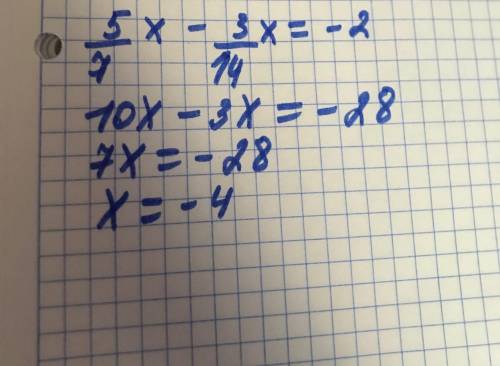 5/7 x - 3/14 x = -2
10x - 3x = -28
7x = -28
x = -4